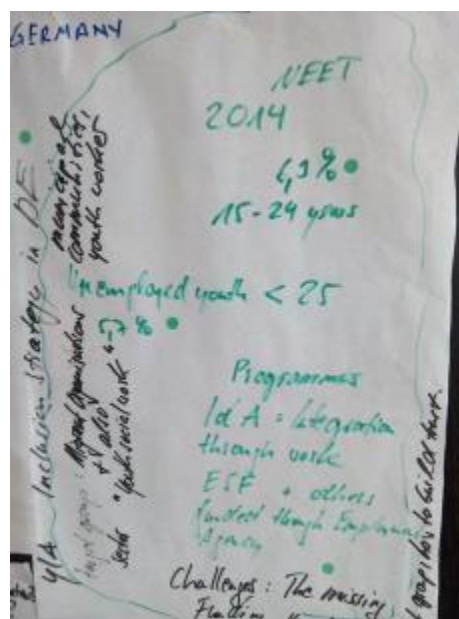 GERMANY
NEET
2014
6,3 %
15-24 years
Unemployed youth < 25
5,7 %
Programmes
IdA = Integration
through work
ESF + others
funded though Employment
Agency
Challenges : The missing
YiA Inclusion strategy in DE
target groups :
+ also
"youth social work"
municipal
communities,
youth workers
to build trust.